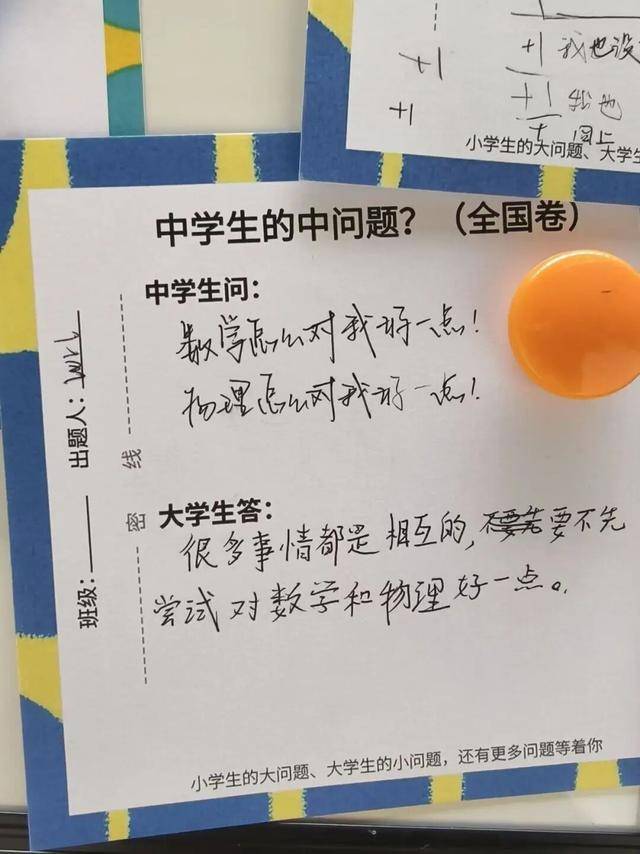 +1
+1 我也没
+1
+1 我也
小学生的大问题、大学生
中学生的中问题？（全国卷）
中学生问：
数学怎么对我好一点！
物理怎么对我好一点！
出题人：
班级：
线
密
大学生答：
很多事情都是相互的，不要先要不先
尝试对数学和物理好一点。
小学生的大问题、大学生的小问题，还有更多问题等着你